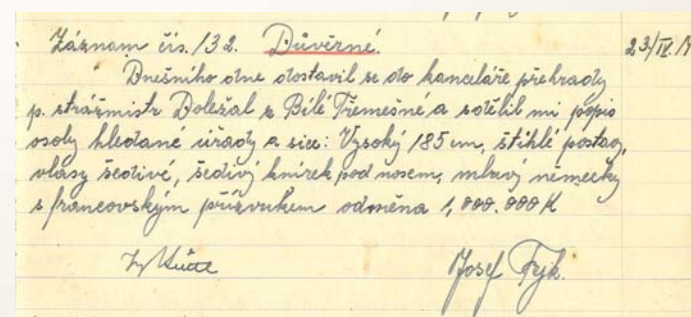 Záznam čís. 132. Důvěrné. 23/IV. 19
Dnešního dne dostavil se do kanceláře přehrady
p. strážmistr Doležal z Bílé Třemešné a sdělil mi popis
osoby hledané úřady a sice: Vysoký 185 cm, štíhlé postavy,
vlasy šedivé, šedivý knírek pod nosem, mluvý německy
s francovským přízvukem odměna 1,000.000 K
Josef Fejk.